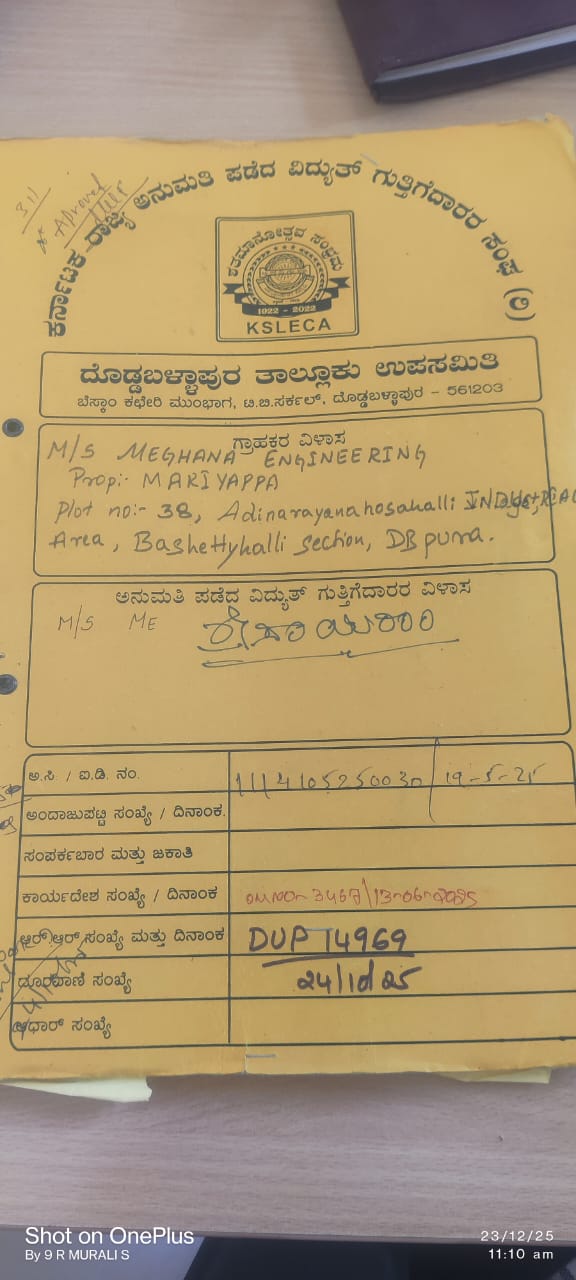 311
Aproved
ಕರ್ನಾಟಕ ರಾಜ್ಯ ಅನುಮತಿ ಪಡೆದ ವಿದ್ಯುತ್ ಗುತ್ತಿಗೆದಾರರ ಸಂಘ (ರಿ)
ಶತಮಾನೋತ್ಸವ ಸಂಭ್ರಮ
1922 - 2022
KSLECA
ದೊಡ್ಡಬಳ್ಳಾಪುರ ತಾಲ್ಲೂಕು ಉಪಸಮಿತಿ
ಬೆಸ್ಕಾಂ ಕಛೇರಿ ಮುಂಭಾಗ, ಟಿ.ಬಿ.ಸರ್ಕಲ್, ದೊಡ್ಡಬಳ್ಳಾಪುರ - 561203
ಗ್ರಾಹಕರ ವಿಳಾಸ
M/S MEGHANA ENGINEERING
Prop:- MARIYAPPA
Plot no:- 38, Adinarayanahosahalli
Area, Bashettyhalli section, DB pura.
ಅನುಮತಿ ಪಡೆದ ವಿದ್ಯುತ್ ಗುತ್ತಿಗೆದಾರರ ವಿಳಾಸ
M/S ME
ಅ.ಸಿ / ಐ.ಡಿ. ನಂ. 19-5-25
ಅಂದಾಜುಪಟ್ಟಿ ಸಂಖ್ಯೆ / ದಿನಾಂಕ.
ಸಂಪರ್ಕಬಾರ ಮತ್ತು ಜಕಾತಿ
ಕಾರ್ಯದೇಶ ಸಂಖ್ಯೆ / ದಿನಾಂಕ 3467/13-06-2025
ಆರ್.ಆರ್ ಸಂಖ್ಯೆ ಮತ್ತು ದಿನಾಂಕ DUP 14969
ದೂರವಾಣಿ ಸಂಖ್ಯೆ
ಆಧಾರ್ ಸಂಖ್ಯೆ
Shot on OnePlus
By 9 R MURALI S
23/12/25
11:10 am